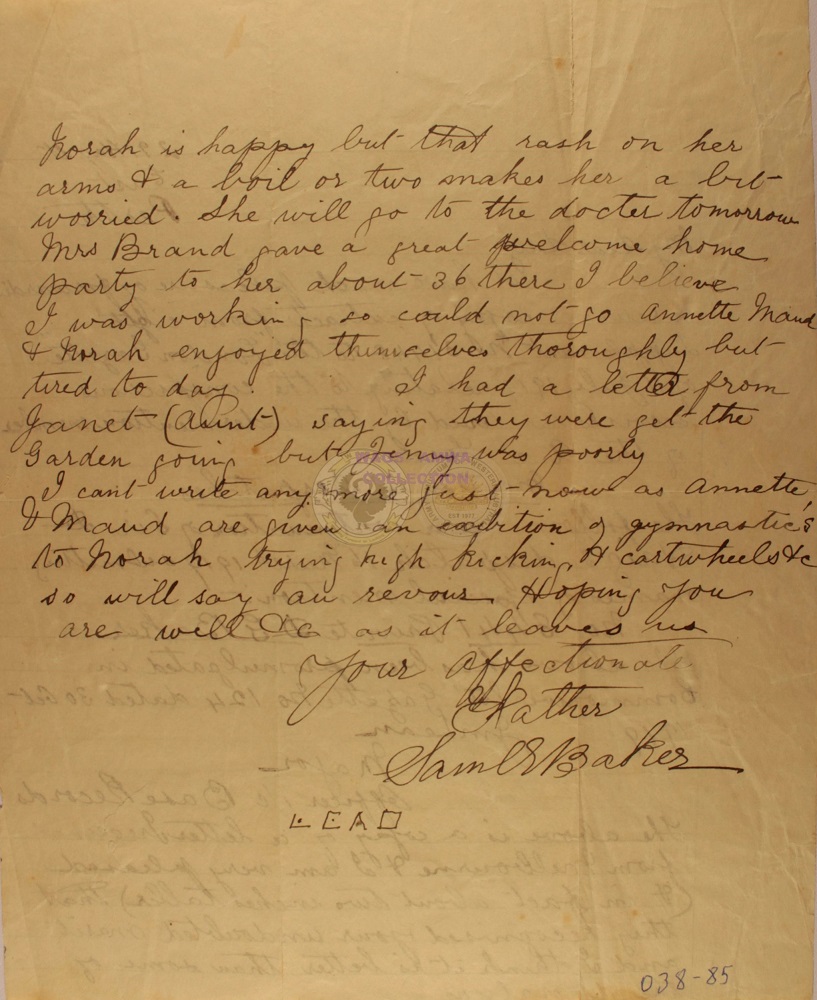 Norah is happy but that rash on her
arms & a boil or two makes her a bit
worried. She will go to the docter tomorrow
Mrs Brand gave a great welcome home
party to her about 36 there I believe
I was working so could not go Annette Maud
& Norah enjoyed themselves thoroughly but
tired to day. I had a letter from
Janet (Aunt) saying they were get the
Garden going but Jenny was poorly
I cant write any more just now as Annette
& Maud are given an exibition of gymnastics
to Norah trying high kicking & cartwheels &c
so will say au revour Hoping you
are well &c as it leaves us
Your Affectionate
Father
Saml E Baker
LEAD
038-85
COLLECTION